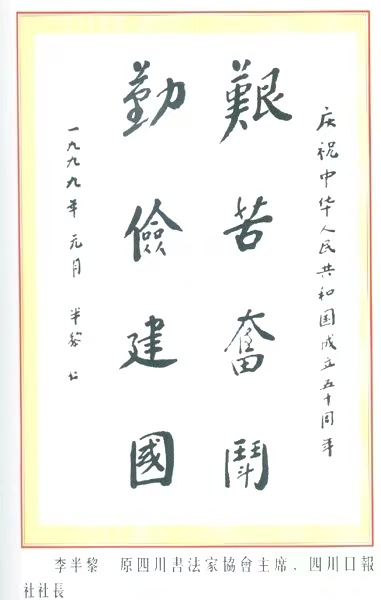 庆祝中华人民共和国成立五十周年
艱苦奮鬥
勤儉建國
一九九九年 元月 半黎 书
李半黎 原四川書法家協會主席．四川日報
社社長